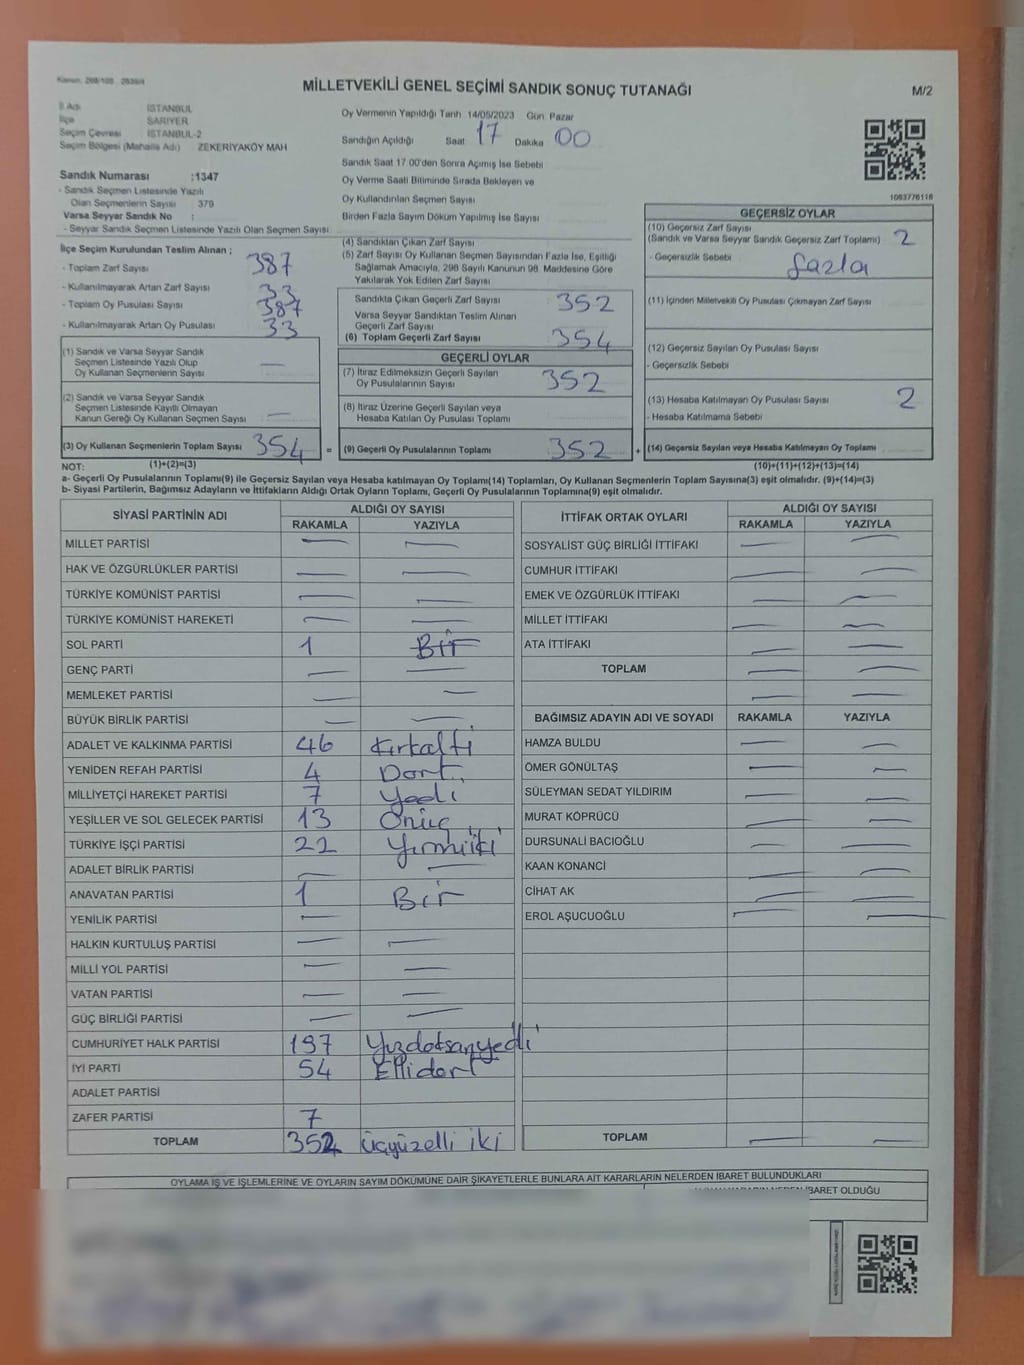 Kanun: 298/105 , 2839/4
MİLLETVEKİLİ GENEL SEÇİMİ SANDIK SONUÇ TUTANAĞI
M/2
İl Adı İSTANBUL
İlçe SARIYER
Seçim Çevresi İSTANBUL-2
Seçim Bölgesi (Mahalle Adı) ZEKERİYAKÖY MAH
Sandık Numarası :1347
- Sandık Seçmen Listesinde Yazılı
Olan Seçmenlerin Sayısı 379
Varsa Seyyar Sandık No :
- Seyyar Sandık Seçmen Listesinde Yazılı Olan Seçmen Sayısı
Oy Vermenin Yapıldığı Tarih 14/05/2023 Gün Pazar
Sandığın Açıldığı Saat 17 Dakika 00
Sandık Saat 17.00'den Sonra Açılmış İse Sebebi
Oy Verme Saati Bitiminde Sırada Bekleyen ve
Oy Kullandırılan Seçmen Sayısı
Birden Fazla Sayım Döküm Yapılmış İse Sayısı
1063776116
İlçe Seçim Kurulundan Teslim Alınan ;
- Toplam Zarf Sayısı 387
- Kullanılmayarak Artan Zarf Sayısı 33
- Toplam Oy Pusulası Sayısı 387
- Kullanılmayarak Artan Oy Pusulası 33
(1) Sandık ve Varsa Seyyar Sandık
Seçmen Listesinde Yazılı Olup
Oy Kullanan Seçmenlerin Sayısı —
(2) Sandık ve Varsa Seyyar Sandık
Seçmen Listesinde Kayıtlı Olmayan
Kanun Gereği Oy Kullanan Seçmen Sayısı —
(3) Oy Kullanan Seçmenlerin Toplam Sayısı 354 =
(4) Sandıktan Çıkan Zarf Sayısı
(5) Zarf Sayısı Oy Kullanan Seçmen Sayısından Fazla İse, Eşitliği
Sağlamak Amacıyla, 298 Sayılı Kanunun 98. Maddesine Göre
Yakılarak Yok Edilen Zarf Sayısı
Sandıkta Çıkan Geçerli Zarf Sayısı 352
Varsa Seyyar Sandıktan Teslim Alınan
Geçerli Zarf Sayısı
(6) Toplam Geçerli Zarf Sayısı 354
GEÇERLİ OYLAR
(7) İtiraz Edilmeksizin Geçerli Sayılan
Oy Pusulalarının Sayısı 352
(8) İtiraz Üzerine Geçerli Sayılan veya
Hesaba Katılan Oy Pusulası Toplamı
(9) Geçerli Oy Pusulalarının Toplamı 352 +
GEÇERSİZ OYLAR
(10) Geçersiz Zarf Sayısı
(Sandık ve Varsa Seyyar Sandık Geçersiz Zarf Toplamı) 2
- Geçersizlik Sebebi fazla
(11) İçinden Milletvekili Oy Pusulası Çıkmayan Zarf Sayısı
(12) Geçersiz Sayılan Oy Pusulası Sayısı
- Geçersizlik Sebebi
(13) Hesaba Katılmayan Oy Pusulası Sayısı 2
- Hesaba Katılmama Sebebi
(14) Geçersiz Sayılan veya Hesaba Katılmayan Oy Toplamı
NOT: (1)+(2)=(3) (10)+(11)+(12)+(13)=(14)
a- Geçerli Oy Pusulalarının Toplamı(9) ile Geçersiz Sayılan veya Hesaba katılmayan Oy Toplamı(14) Toplamları, Oy Kullanan Seçmenlerin Toplam Sayısına(3) eşit olmalıdır. (9)+(14)=(3)
b- Siyasi Partilerin, Bağımsız Adayların ve İttifakların Aldığı Ortak Oyların Toplamı, Geçerli Oy Pusulalarının Toplamına(9) eşit olmalıdır.
SİYASİ PARTİNİN ADI ALDIĞI OY SAYISI
RAKAMLA YAZIYLA
MİLLET PARTİSİ — —
HAK VE ÖZGÜRLÜKLER PARTİSİ — —
TÜRKİYE KOMÜNİST PARTİSİ — —
TÜRKİYE KOMÜNİST HAREKETİ — —
SOL PARTİ 1 Bir
GENÇ PARTİ — —
MEMLEKET PARTİSİ — —
BÜYÜK BİRLİK PARTİSİ — —
ADALET VE KALKINMA PARTİSİ 46 Kırkaltı
YENİDEN REFAH PARTİSİ 4 Dört
MİLLİYETÇİ HAREKET PARTİSİ 7 Yedi
YEŞİLLER VE SOL GELECEK PARTİSİ 13 Onüç
TÜRKİYE İŞÇİ PARTİSİ 22 Yirmiiki
ADALET BİRLİK PARTİSİ — —
ANAVATAN PARTİSİ 1 Bir
YENİLİK PARTİSİ —
HALKIN KURTULUŞ PARTİSİ — —
MİLLİ YOL PARTİSİ — —
VATAN PARTİSİ — —
GÜÇ BİRLİĞİ PARTİSİ — —
CUMHURİYET HALK PARTİSİ 197 Yüzdoksanyedi
İYİ PARTİ 54 Ellidört
ADALET PARTİSİ
ZAFER PARTİSİ 7
TOPLAM 352 üçyüzelli iki
İTTİFAK ORTAK OYLARI ALDIĞI OY SAYISI
RAKAMLA YAZIYLA
SOSYALİST GÜÇ BİRLİĞİ İTTİFAKI — —
CUMHUR İTTİFAKI — —
EMEK VE ÖZGÜRLÜK İTTİFAKI — —
MİLLET İTTİFAKI — —
ATA İTTİFAKI — —
TOPLAM — —
BAĞIMSIZ ADAYIN ADI VE SOYADI RAKAMLA YAZIYLA
HAMZA BULDU — —
ÖMER GÖNÜLTAŞ — —
SÜLEYMAN SEDAT YILDIRIM — —
MURAT KÖPRÜCÜ — —
DURSUNALİ BACIOĞLU — —
KAAN KONANCİ — —
CİHAT AK — —
EROL AŞUCUOĞLU — —
TOPLAM — —
OYLAMA İŞ VE İŞLEMLERİNE VE OYLARIN SAYIM DÖKÜMÜNE DAİR ŞİKAYETLERLE BUNLARA AİT KARARLARIN NELERDEN İBARET BULUNDUKLARI
İBARET OLDUĞU